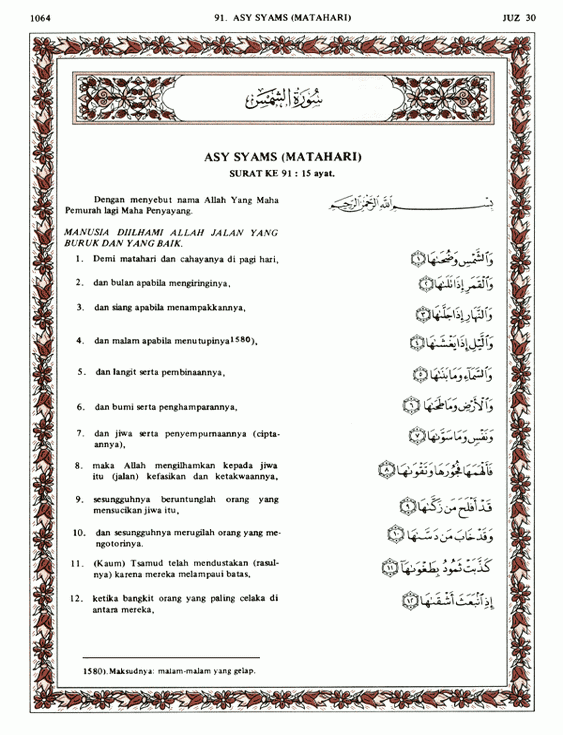 1064 91. ASY SYAMS (MATAHARI) JUZ 30
سُورَةُ الشَّمْسِ
ASY SYAMS (MATAHARI)
SURAT KE 91 : 15 ayat.
Dengan menyebut nama Allah Yang Maha
Pemurah lagi Maha Penyayang.
بِسْمِ اللَّهِ الرَّحْمَٰنِ الرَّحِيمِ
MANUSIA DIILHAMI ALLAH JALAN YANG
BURUK DAN YANG BAIK.
1. Demi matahari dan cahayanya di pagi hari,
وَالشَّمْسِ وَضُحَىٰهَا ﴿١﴾
2. dan bulan apabila mengiringinya,
وَالْقَمَرِ إِذَا تَلَىٰهَا ﴿٢﴾
3. dan siang apabila menampakkannya,
وَالنَّهَارِ إِذَا جَلَّىٰهَا ﴿٣﴾
4. dan malam apabila menutupinya1580),
وَالَّيْلِ إِذَا يَغْشَىٰهَا ﴿٤﴾
5. dan langit serta pembinaannya,
وَالسَّمَاءِ وَمَا بَنَىٰهَا ﴿٥﴾
6. dan bumi serta penghamparannya,
وَالْأَرْضِ وَمَا طَحَىٰهَا ﴿٦﴾
7. dan jiwa serta penyempurnaannya (cipta-
annya),
وَنَفْسٍ وَمَا سَوَّىٰهَا ﴿٧﴾
8. maka Allah mengilhamkan kepada jiwa
itu (jalan) kefasikan dan ketakwaannya,
فَأَلْهَمَهَا فُجُورَهَا وَتَقْوَىٰهَا ﴿٨﴾
9. sesungguhnya beruntunglah orang yang
mensucikan jiwa itu,
قَدْ أَفْلَحَ مَن زَكَّىٰهَا ﴿٩﴾
10. dan sesungguhnya merugilah orang yang me-
ngotorinya.
وَقَدْ خَابَ مَن دَسَّىٰهَا ﴿١٠﴾
11. (Kaum) Tsamud telah mendustakan (rasul-
nya) karena mereka melampaui batas,
كَذَّبَتْ ثَمُودُ بِطَغْوَىٰهَا ﴿١١﴾
12. ketika bangkit orang yang paling celaka di
antara mereka,
إِذِ انبَعَثَ أَشْقَىٰهَا ﴿١٢﴾
1580). Maksudnya: malam-malam yang gelap.